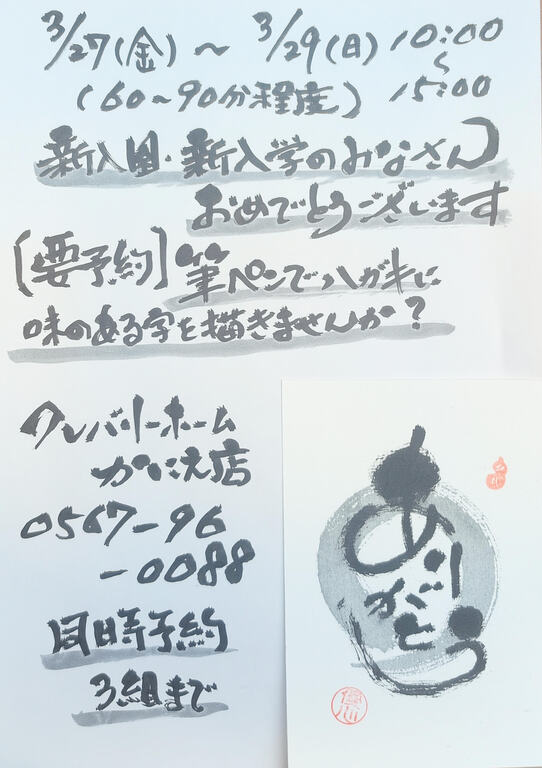 3/27(金)～3/29(日) 10:00
～
(60～90分程度) 15:00
新入園・新入学のみなさん
おめでとうございます
[要予約]筆ペンでハガキに
味のある字を描きませんか?
クレバリーホーム
かにえ店
0567-96
-0088
同時予約
3組まで
ありがとう